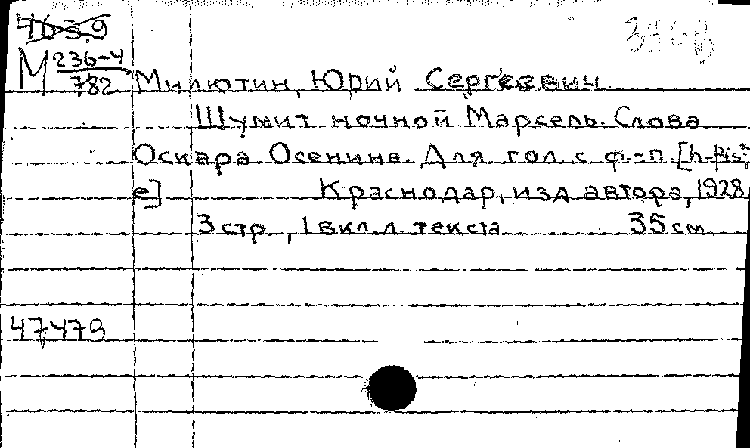 4ю3.9
М 236-4
782
Милютин, Юрий Сергеевич
Шумит ночной Марсель. Слова
Оскара Осенина. Для гол. с ф.-п. [h-fis²;
e] Краснодар, изд автора, 1928
3 стр., 1 вкл. л текста 35 см
47479